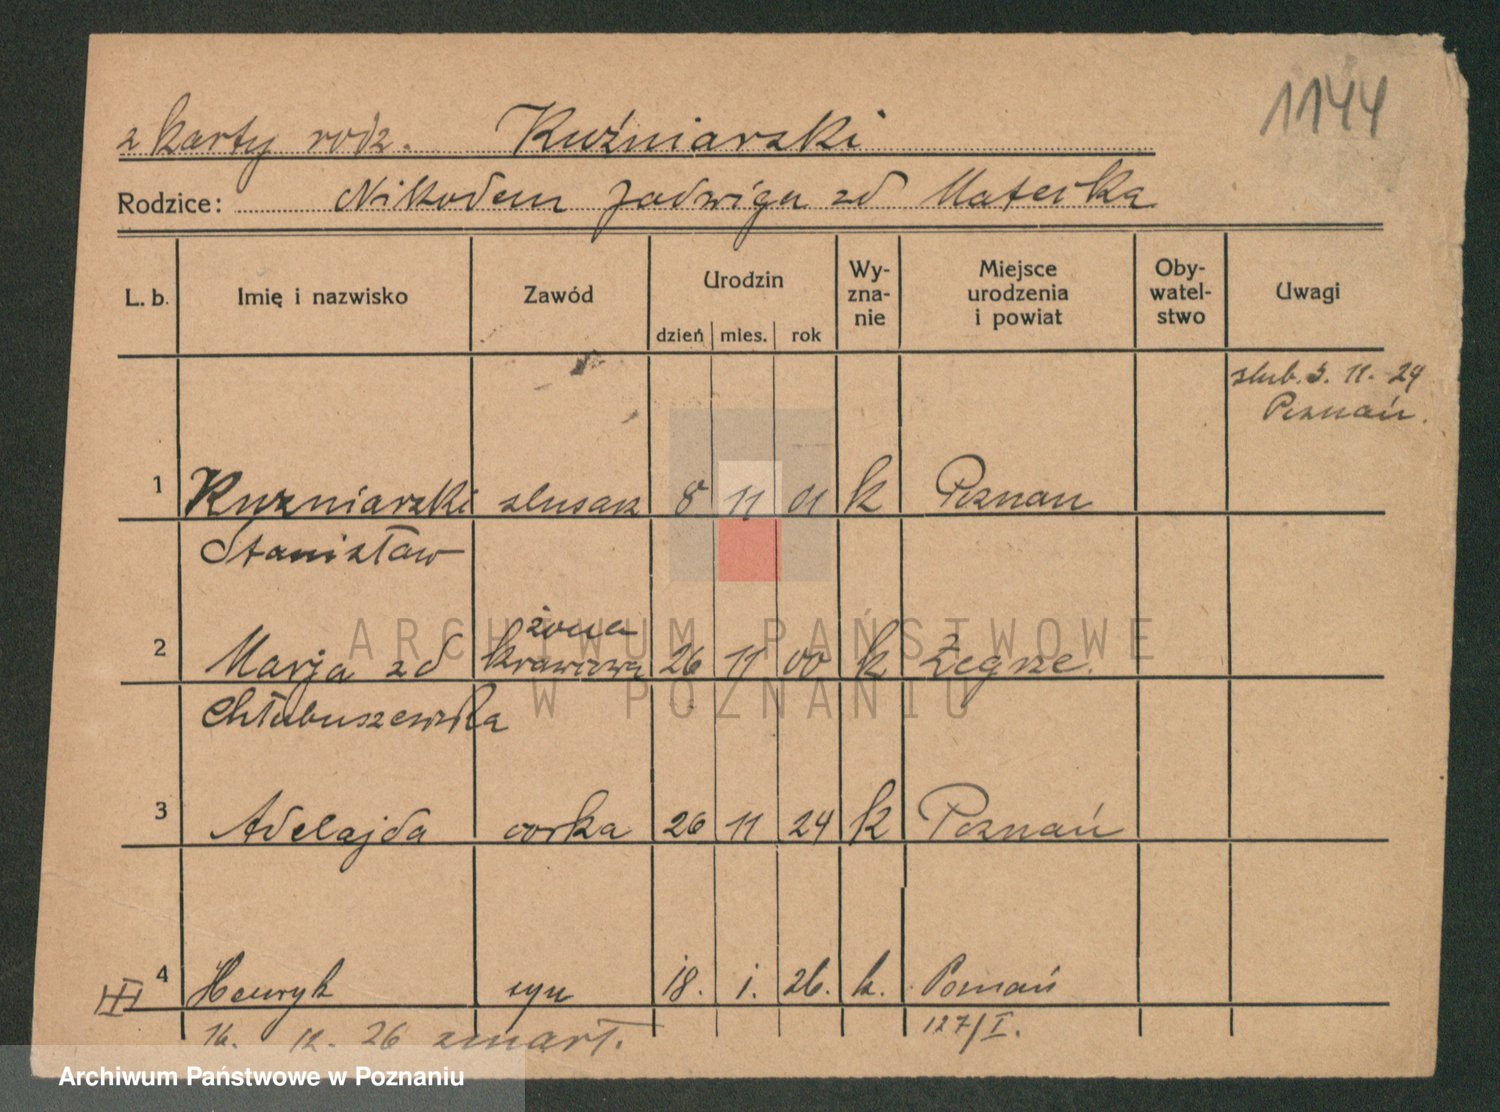 1144
z karty rodz. Kuźniarski
Rodzice: Nikodem Jadwiga zd Materka
L. b. Imię i nazwisko Zawód Urodzin dzień mies. rok Wy-zna-nie Miejsce urodzenia i powiat Oby-watel-stwo Uwagi
ślub. 3. 11. 24
Poznań.
1 Kuzniarski slusarz 8 11 01 k Poznan
Stanisław
żona
2 Marja zd krawcowa 26 11 00 k Żegrze.
Chłubuszewska
3 Adelajda corka 26 11 24 k Poznań
4 Henryk syn 18. 1. 26. k. Poznań
16. 12. 26 zmarł. 127/I.
ARCHIWUM PAŃSTWOWE
W POZNANIU
Archiwum Państwowe w Poznaniu